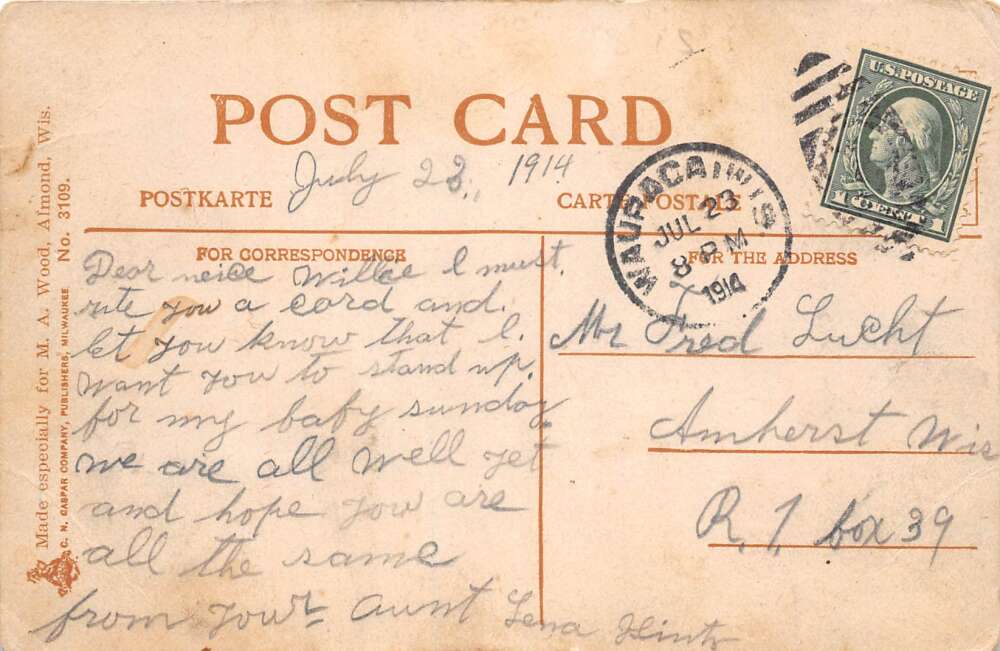 POST CARD
July 23, 1914
POSTKARTE
CARTE POSTALE
FOR CORRESPONDENCE
FOR THE ADDRESS
U.S. POSTAGE
1 CENT 1
WAUPACA WIS
JUL 23
8 PM
1914
Dear neice Willie I must.
rite you a card and.
let you know that I.
want you to stand up.
for my baby sunday
we are all well yet
and hope you are
all the same
from your aunt Lena Hintz
Mr Fred Lucht
Amherst Wis
R. 1 box 39
Made especially for M. A. Wood, Almond, Wis.
C. N. CASPAR COMPANY, PUBLISHERS, MILWAUKEE No. 3109.